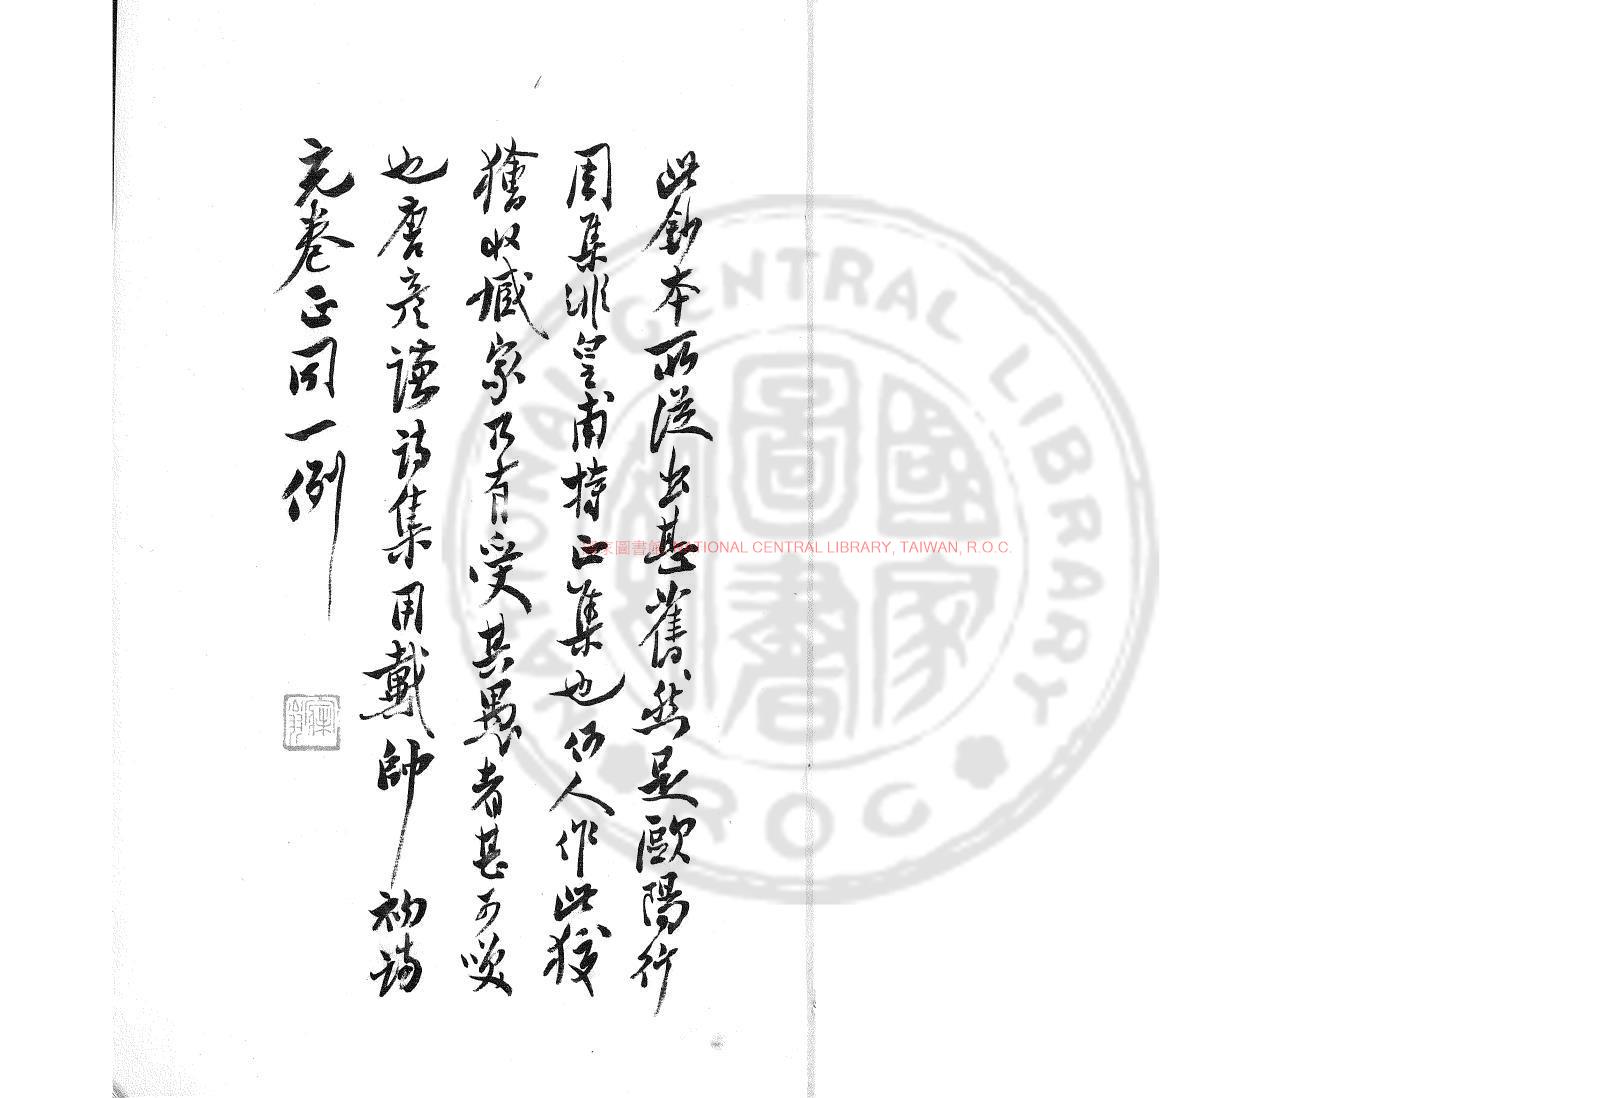 此鈔本所從出甚舊然是歐陽行
周集非皇甫持正集也何人作此狡
獪收藏家乃有受其愚者甚可唉
也唐彥謙詩集用戴帥初詩
充卷正同一例
國家圖書館 NATIONAL CENTRAL LIBRARY, TAIWAN, R.O.C.
NATIONAL CENTRAL LIBRARY
國家圖書館
ROC